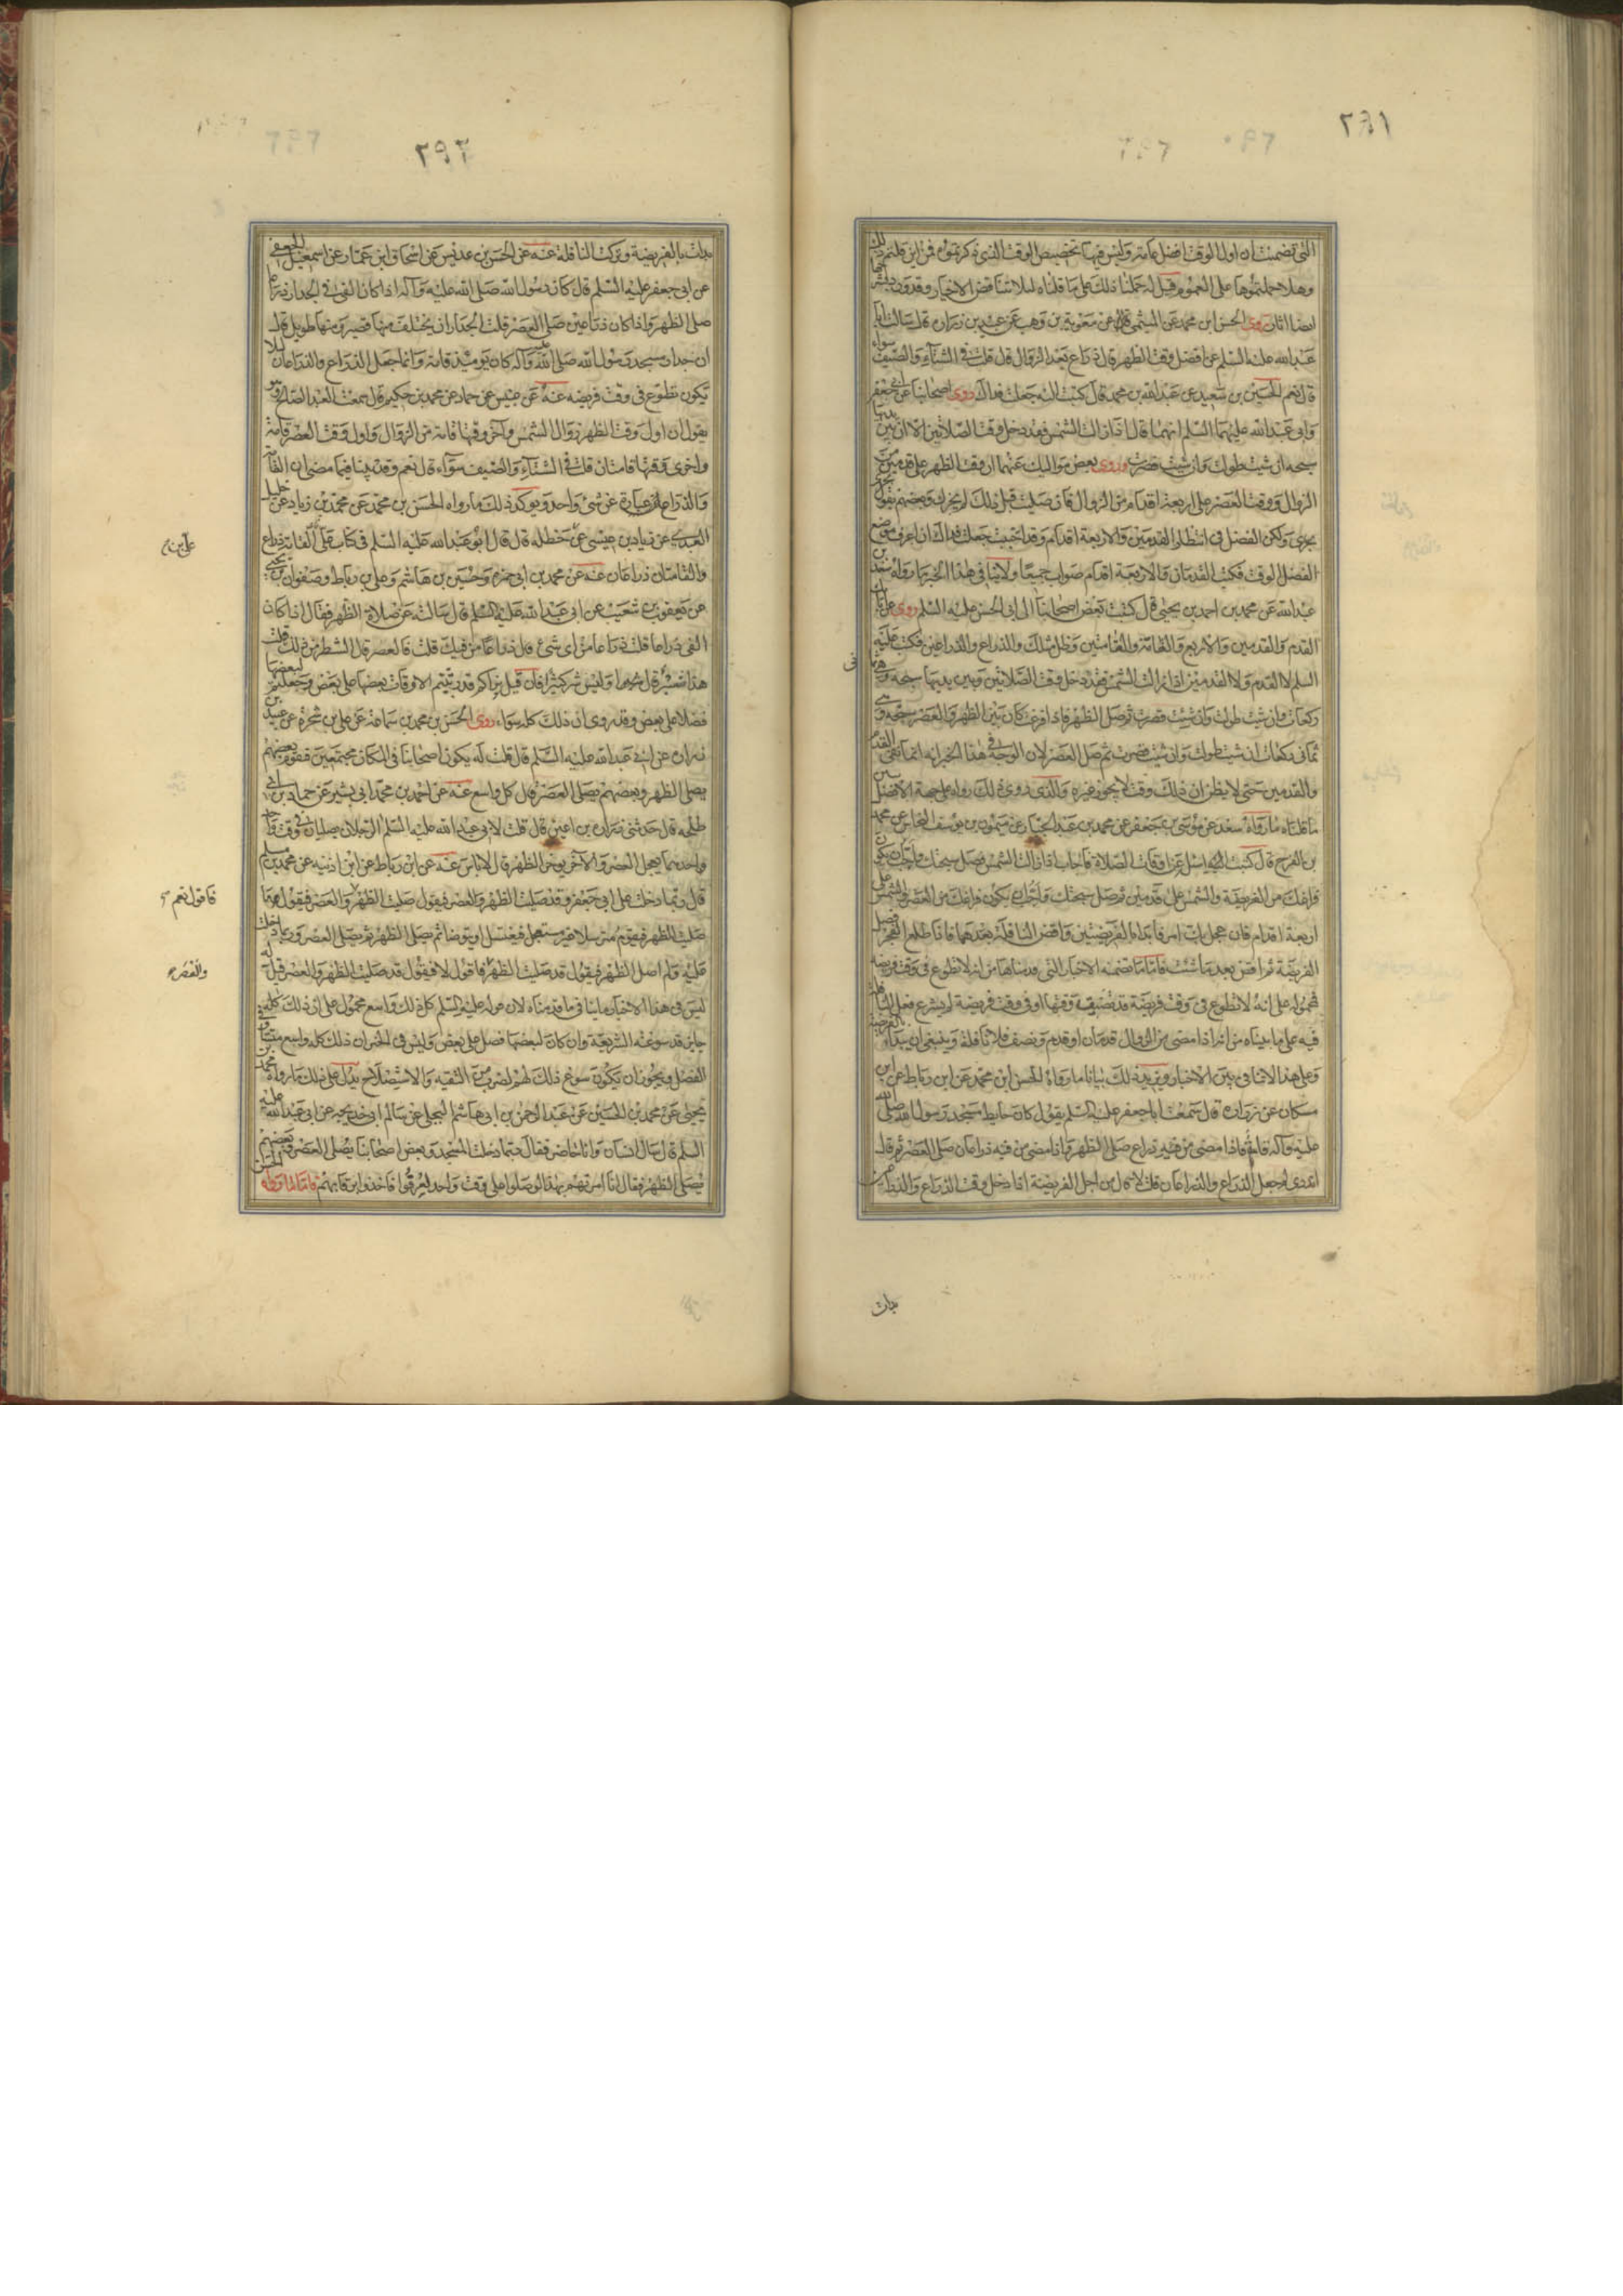 ٢٩١
التی تضمنت ان اول الوقت افضل عامة ولیس فیها تخصیص الوقت الذی ذکرتموه فمن این قلتم ذلک
وهلا حملتموها علی العموم قیل له حملنا ذلک علی ما قلناه لئلا تتناقض الاخبار وقد ورد بشرحها
ایضا اثار روی الحسن ابن محمد عن المیثمی عن معویة بن وهب عن عبید بن زرارة قال سالت ابا
عبدالله علیه السلم عن افضل وقت الظهر قال ذراع بعد الزوال قال قلت فی الشتاء والصیف سواء
قال نعم الحسین بن سعید عن عبدالله بن محمد قال کتبت الیه جعلت فداک روی اصحابنا عن ابی جعفر
وابی عبدالله علیهما السلم انهما قالا اذا زالت الشمس فقد دخل وقت الصلاتین الا ان بین یدیها
سبحة ان شئت طولت وان شئت قصرت وروی بعض موالیک عنهما ان وقت الظهر علی قدمین من
الزوال ووقت العصر علی اربعة اقدام من الزوال فان صلیت قبل ذلک لم یجزک وبعضهم یقول
یجزی ولکن الفضل فی انتظار القدمین والاربعة اقدام وقد احببت جعلت فداک ان اعرف موضع
الفضل الوقت فکتب القدمان والاربعة اقدام صواب جمیعا ولا ینافی هذا الخبر ما رواه سعد بن
عبدالله عن محمد بن احمد بن یحیی قال کتبت بعض اصحابنا الی ابی الحسن علیه السلم روی عن ابائک
القدم والقدمین والاربع والقامة والقامتین وظل مثلک والذراع والذراعین فکتب علیه
السلم لا القدم ولا القدمین اذا زالت الشمس فقد دخل وقت الصلاتین وبین یدیها سبحه وهی ثمانی
رکعات وان شئت طولت وان شئت قصرت ثم صل الظهر فاذا فرغت کان بین الظهر والعصر سبحة وهی
ثمانی رکعات ان شئت طولت وان شئت قصرت ثم صل العصر لان الوجه فی هذا الخبر انه انما نفی القدم
والقدمین حتی لا یظن ان ذلک وقت لا یجوز غیره والذی روی ذلک رواه علی جهة الافضل یبین
ما قلناه ما رواه سعد عن موسی بن جعفر عن محمد بن عبد الجبار عن میمون بن یوسف النخاس عن محمد
بن الفرج قال کتبت الیه اسئل عن اوقات الصلاة فاجاب اذا زالت الشمس فصل سبحتک واحب ان یکون
فراغک من الفریضة والشمس علی قدمین ثم صل سبحتک واحب ان یکون فراغک من العصر والشمس علی
اربعة اقدام فان عجل بک امر فابدا بالفریضتین واقض النافلة بعدهما فاذا طلع الفجر فصل
الفریضة ثم اقض بعد ما شئت فاما ما تضمنه الاخبار التی قدمناها من انه لا تطوع فی وقت فریضة
فمحموله علی انه لا تطوع فی وقت فریضة قد تضیق وقتها او فی وقت فریضة لم یشرع فعل النافلة
فیه علی ما بیناه من انه اذا مضی من الزوال قدمان او قدم ونصف فلا نافلة وینبغی ان یبداء بالفریضة
وعلی هذا لا تنافی بین الاخبار ویزید ذلک بیانا ما رواه الحسن ابن محمد عن ابن رباط عن ابن
مسکان عن زراره قال سمعت ابا جعفر علیه السلم یقول کان حایط مسجد رسول الله صلی الله
علیه وآله قامة فاذا مضی من فیئه ذراع صلی الظهر واذا مضی من فیئه ذراعان صلی العصر ثم قال
اتدری لم جعل الذراع والذراعان قلت لا قال من اجل الفریضة اذا دخل وقت الذراع والذراعین
بدات
٢٩٢
بدات بالفریضة وترکت النافلة عنه عن الحسن بن عدیس عن اسحاق ابن عمار عن اسمعیل الجعفی
عن ابی جعفر علیه السلم قال کان رسول الله صلی الله علیه وآله اذا کان الفی فی الجدار ذراعا
صلی الظهر واذا کان ذراعین صلی العصر قلت الجدار ان یختلف منها قصیر ومنها طویل قال
ان جدار مسجد رسول الله صلی الله علیه وآله کان یومئذ قامة وانما جعل الذراع والذراعان لئلا
یکون تطوع فی وقت فریضه عنه عن عبیس عن حماد عن محمد بن حکیم قال سمعت العبد الصالح وهو
یقول ان اول وقت الظهر زوال الشمس وآخر وقتها قامة من الزوال واول وقت العصر قامة
واخر وقتها قامتان قلت فی الشتاء والصیف سواء قال نعم وقد بینا فیما مضی ان القامة
والذراع عبارة عن شئ واحد ویوکد ذلک ما رواه الحسن بن محمد عن محمد بن زیاد عن خلیل
العبدی عن زیاد بن عیسی عن حنظله قال قال ابو عبدالله علیه السلم فی کتاب علی القامة ذراع
والقامتان ذراعان عنه عن محمد بن ابی حمزه وحسین بن هاشم وعلی بن رباط وصفوان بن یحیی
عن یعقوب بن شعیب عن ابی عبدالله علیه السلم قال سالته عن صلاة الظهر فقال اذا کان
الفی ذراعا قلت ذراعا من ای شئ قال ذراعا من فیئک قلت فالعصر قال الشطر من ذلک قلت
هذا شبر قال شبرا ولیس شبر کثیرا فان قیل نراکم قد رتبتم الاوقات بعضها علی بعض وجعلتم لبعضها
فضلا علی بعض وقد روی ان ذلک کله سواء روی الحسن بن محمد بن سماعة عن علی بن شجرة عن عبید بن
زراره عن ابی عبدالله علیه السلم قال قلت له یکون اصحابنا فی المکان مجتمعین فیقوم بعضهم
یصلی الظهر وبعضهم یصلی العصر قال کل واسع عنه عن احمد بن محمد ابی بشیر عن حماد بن ابی
طلحه قال حدثنی زرارة بن اعین قال قلت لابی عبدالله علیه السلم الرجلان یصلیان فی وقت واحد
واحدهما یعجل العصر والآخر یوخر الظهر قال لا باس عنه عن ابن رباط عن ابن اذینه عن محمد بن مسلم
قال ربما دخلت علی ابی جعفر وقد صلیت الظهر والعصر فیقول صلیت الظهر والعصر فیقول ما
صلیت الظهر فیقوم مترسلا غیر مستعجل فیغتسل او یتوضا ثم یصلی الظهر ثم یصلی العصر وربما دخلت
علیه ولم اصل الظهر فیقول قد صلیت الظهر فاقول لا فیقول قد صلیت الظهر والعصر قیل له
لیس فی هذا الاخبار ما ینافی ما قدمناه لان قوله علیه السلم کل ذلک واسع محمول علی ان ذلک کله
جایز قد سوغته الشریعة وان کان لبعضها فضل علی بعض ولیس فی الخبر ان ذلک کله واسع متساو فی
الفضل ویجوز ان یکون سوغ ذلک لهم لضرب من التقیه والاستصلاح یدل علی ذلک ما رواه محمد بن
یحیی عن محمد بن الحسین عن عبد الرحمن بن ابی هاشم البجلی عن سالم ابی خدیجه عن ابی عبدالله علیه
السلم قال سال انسان وانا حاضر فقال ربما دخلت المسجد وبعض اصحابنا یصلی العصر وبعضهم
یصلی الظهر فقال انا امرتهم بهذا لو صلوا علی وقت واحد لعرفوا فاخذوا برقابهم فاما ما رواه الحسن
علی بن
فاقول نعم
والعصر